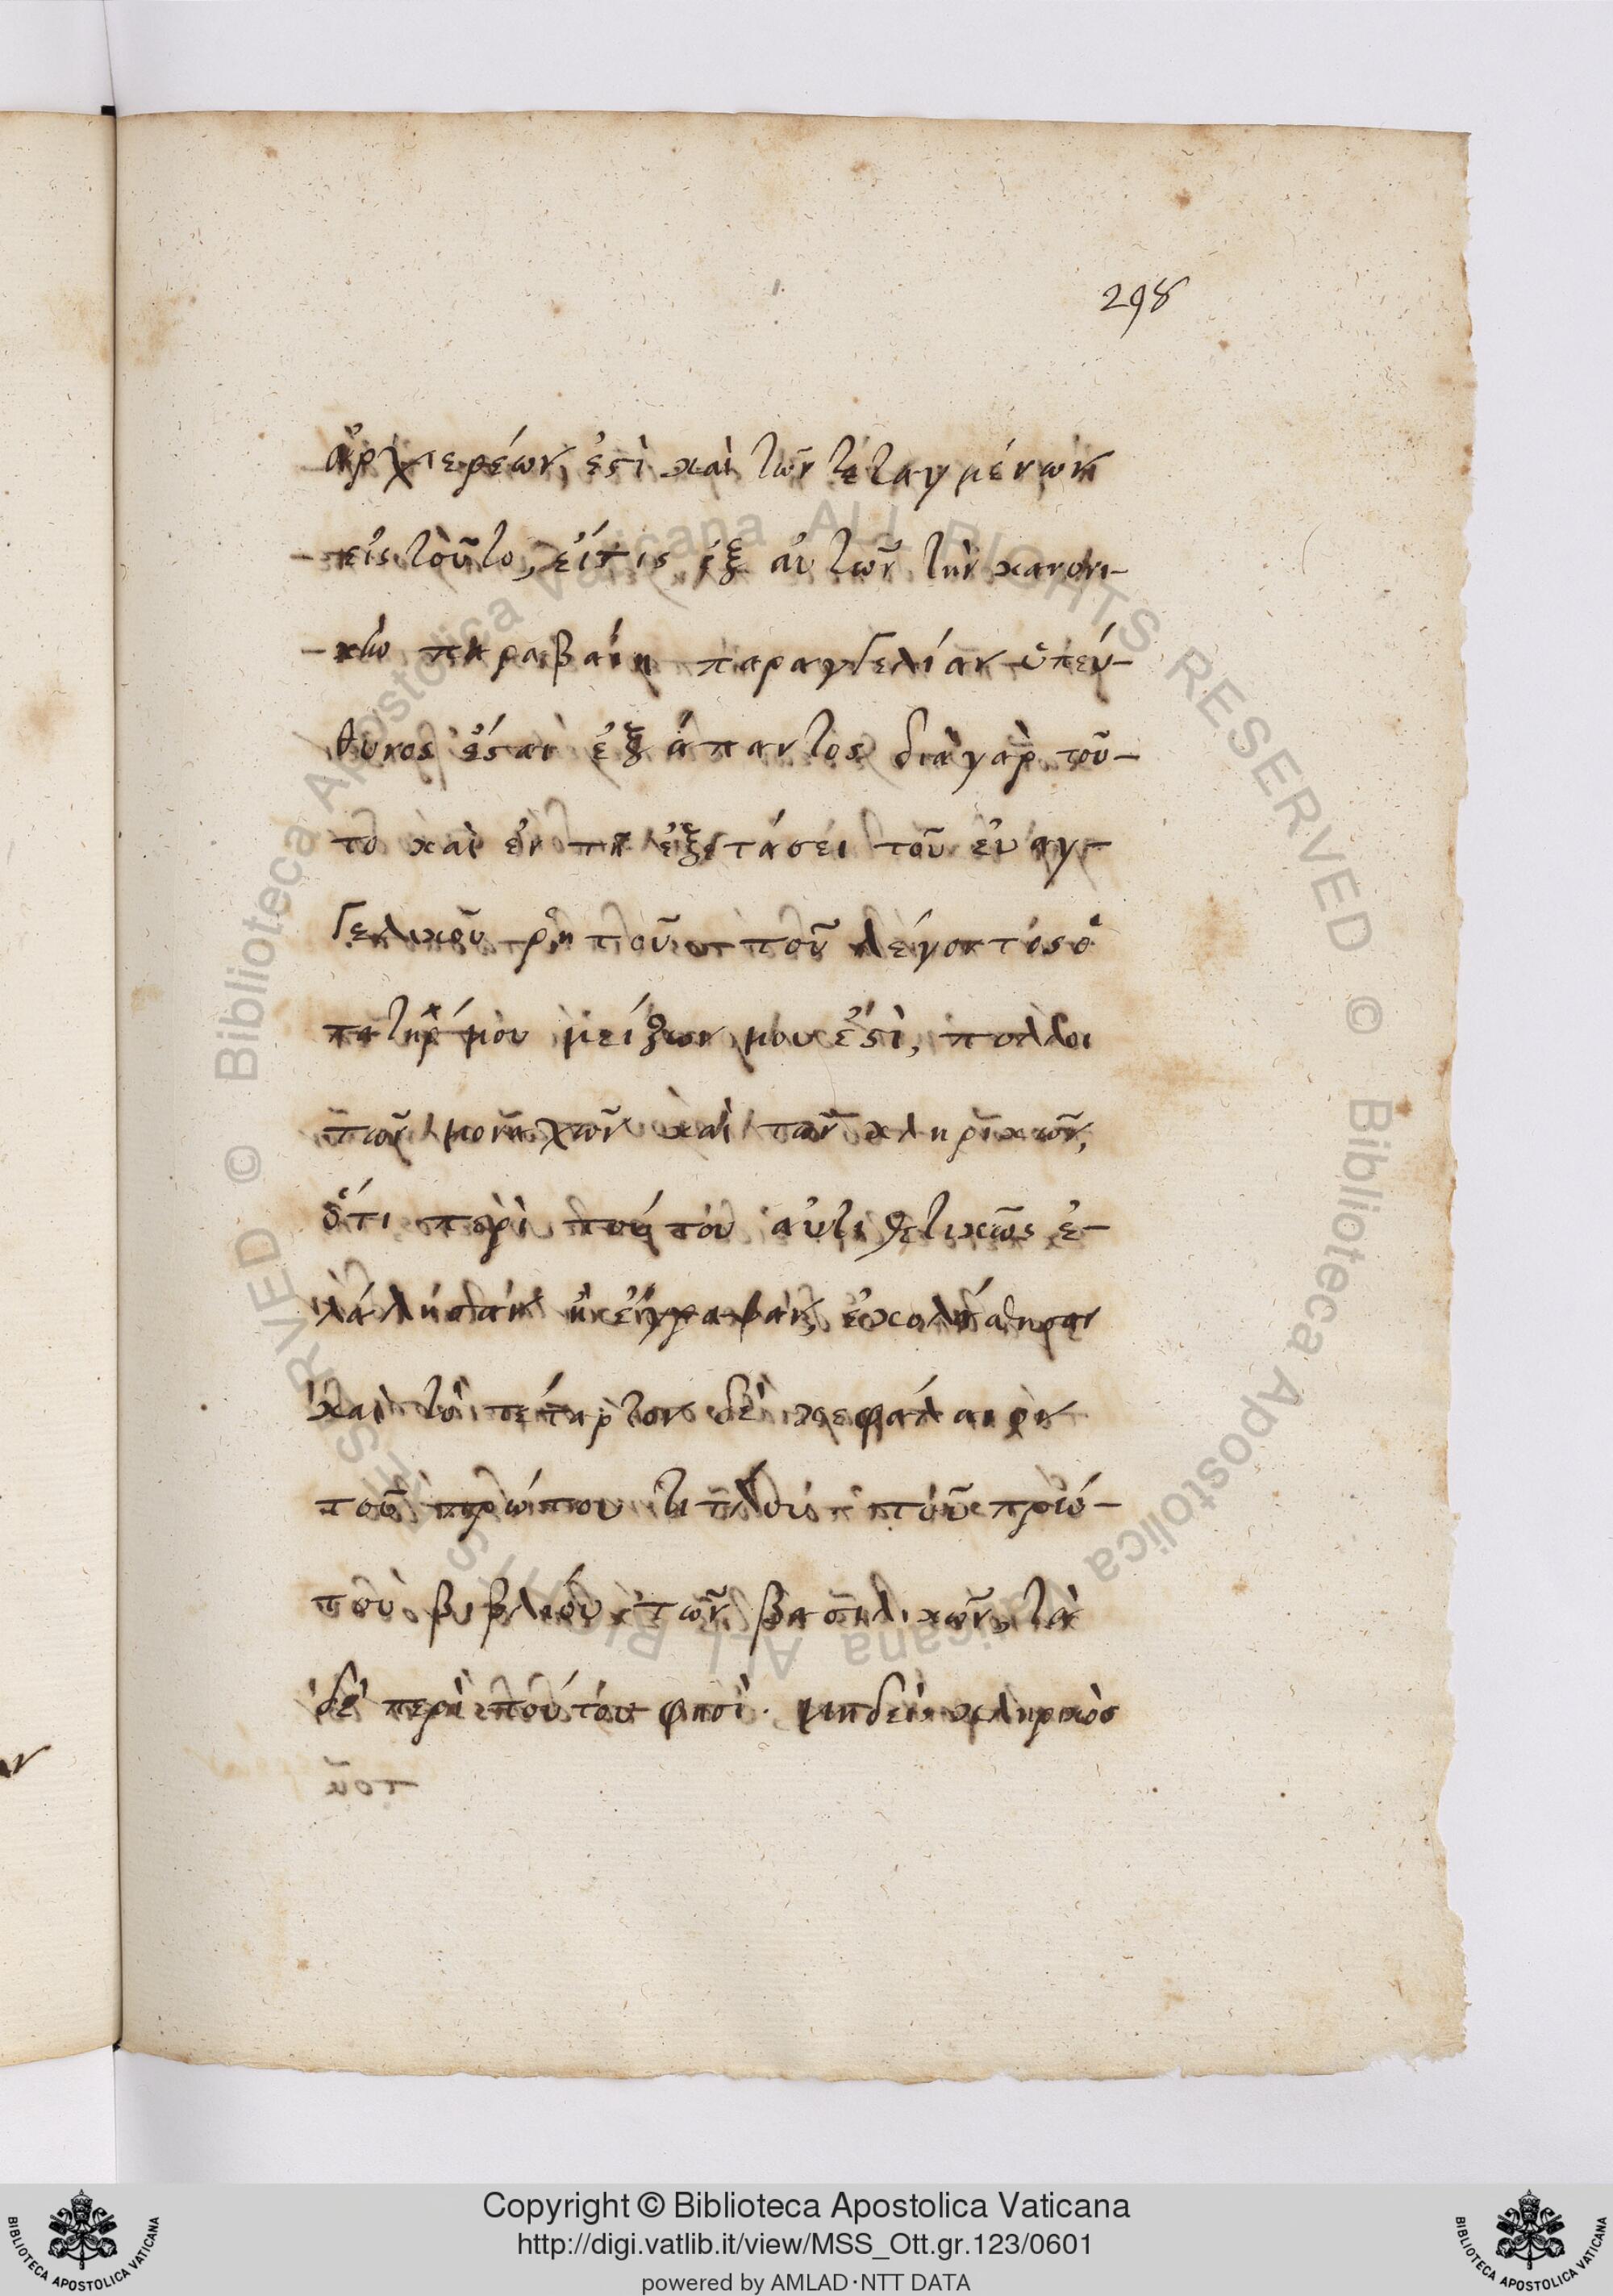 298
ἀρχιερέων ἐστὶ καὶ τῶν τεταγμένων
εἰς τοῦτο, εἴτις ἐξ αὐτῶν τὴν κανονι-
-κὴν παραβαίη παραγγελίαν ὑπεύ-
θυνος ἔσται ἐξ ἅπαντος διὰ γὰρ τοῦ-
το καὶ ἐν τῇ ἐξετάσει τοῦ εὐαγ-
γελικοῦ ῥητοῦ τοῦ λέγοντος ὁ
πατήρ μου μείζων μου ἐστὶ, πολλοι
τῶν μοναχῶν καὶ τῶν κληρικῶν,
ὅτι περὶ τούτου ἀντιθετικῶς ἐ-
λάλησαν ἢ ἔγραψαν, ἐκολάσθησαν
καὶ τὸ τέταρτον δὲ κεφάλαιον
τοῦ πρώτου τίτλου τοῦ πρώ-
του βιβλίου τῶν βασιλικῶν, τὰ
δὲ περὶ τούτου φησὶ. μηδεὶς κληρικὸς
Copyright © Biblioteca Apostolica Vaticana
http://digi.vatlib.it/view/MSS_Ott.gr.123/0601
powered by AMLAD·NTT DATA
BIBLIOTECA APOSTOLICA VATICANA
BIBLIOTECA APOSTOLICA VATICANA
© Biblioteca Apostolica Vaticana ALL RIGHTS RESERVED
© Biblioteca Apostolica Vaticana ALL RIGHTS RESERVED